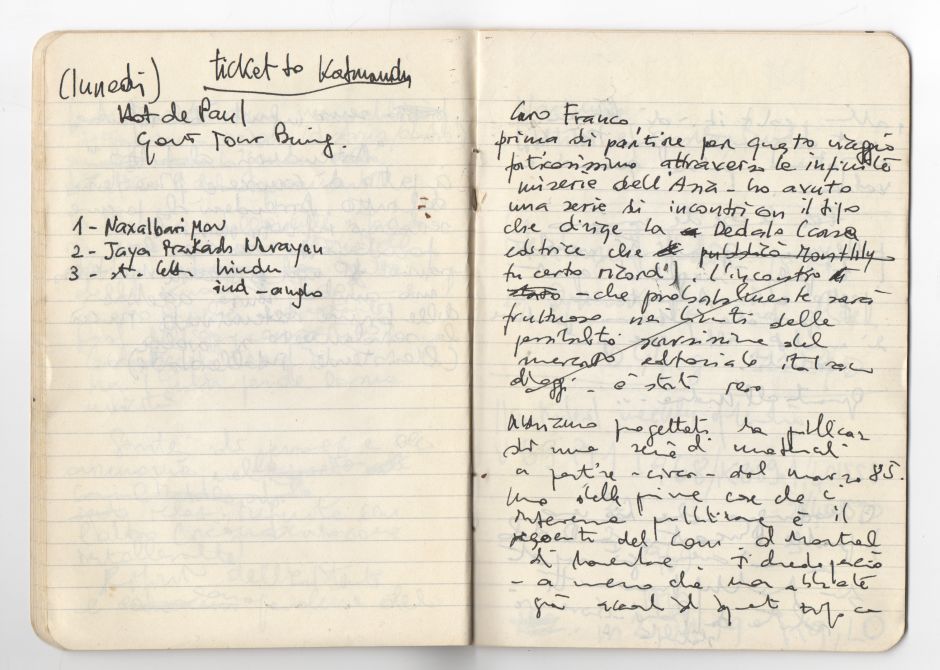 (lunedì) ticket to Katmandu
Hot de Paul
Govt Tour Bung.
1 - Naxalbari Mov
2 - Jaya Prakash Narayan
3 - hindu
ind-anglo
Caro Franco
prima di partire per questo viaggio
faticosissimo attraverso le infinite
miserie dell'Asia - ho avuto
una serie di incontri con il tipo
che dirige la Dedalo Casa
editrice che pubblicò Monthly
tu certo ricordi] l'incontro
- che probabilmente sarà
fruttuoso nei limiti delle
possibilità scarsissime del
mercato editoriale italiano
d'oggi - è stato
Abbiamo progettato la pubblicaz
di una serie di materiali
a partire - circa - dal marzo 85.
Una delle prime cose che ci
interessa pubblicare è il
del
di Ti chiedo perciò
- a meno che non abbiate
già